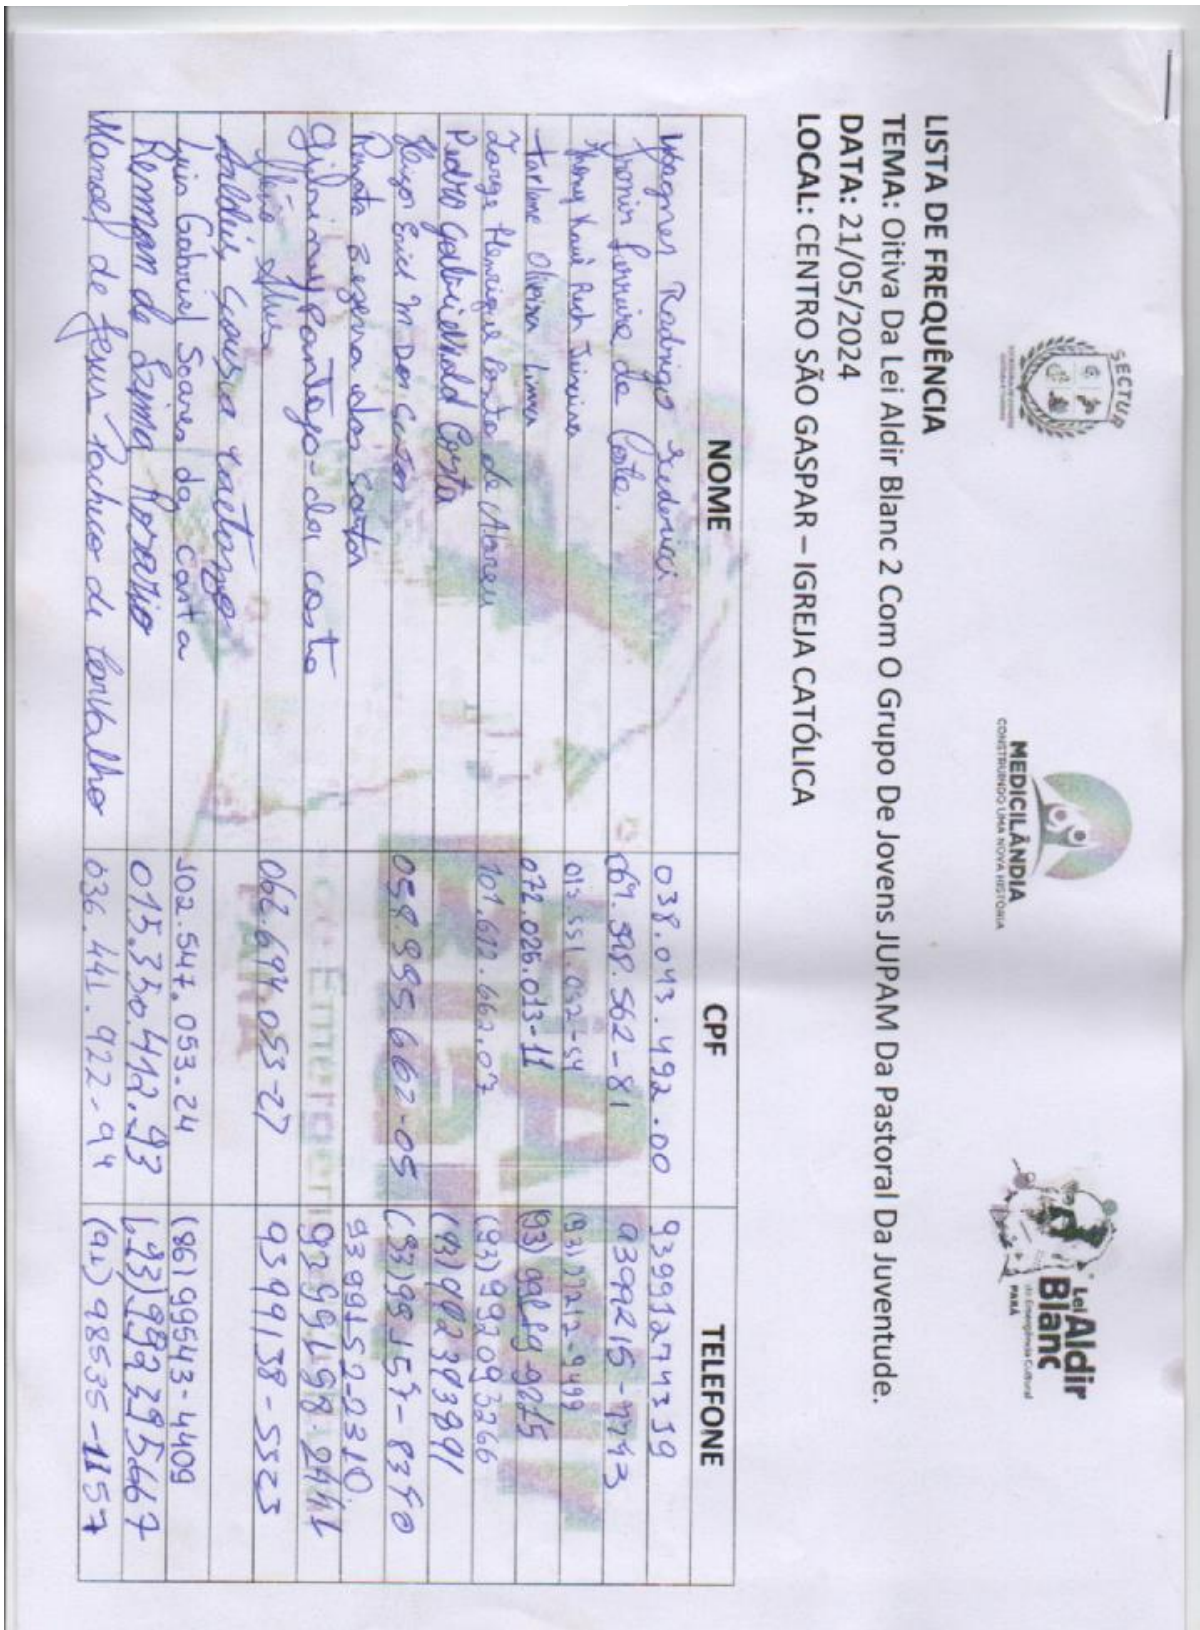 SECTUR
MEDICILÂNDIA
CONSTRUINDO UMA NOVA HISTÓRIA
Lei Aldir
Blanc
de Emergência Cultural
PARÁ
LISTA DE FREQUÊNCIA
TEMA: Oitiva Da Lei Aldir Blanc 2 Com O Grupo De Jovens JUPAM Da Pastoral Da Juventude.
DATA: 21/05/2024
LOCAL: CENTRO SÃO GASPAR – IGREJA CATÓLICA
NOME CPF TELEFONE
Wagner Rodrigo 038.043.492.00 93991274339
Ferreira da Costa. 93992615-7743
Kauê 013.551.032-54 (93)99212-9499
Tarlane Oliveira Lima 072.025.013-11 (93)
Jorge Henrique de Abreu 101.612.662.07 (93)992093266
Pedro Costa (93)992383891
Dos Santos 058.995.662-05 (93)99157-8340
Renata Bezerra dos Santos 93 99152-2310.
Pantoja da Costa
Alves 062.694.053-27 93 99138-5523
Sousa Caetano
Luis Gabriel Soares da Costa 102.547.053.24 (86)99543-4409
Rennan de Lima Rosario 015.330.412.93 (93)992395667
Manoel de Jesus Pacheco de Carvalho 036.441.922-94 98535-1157